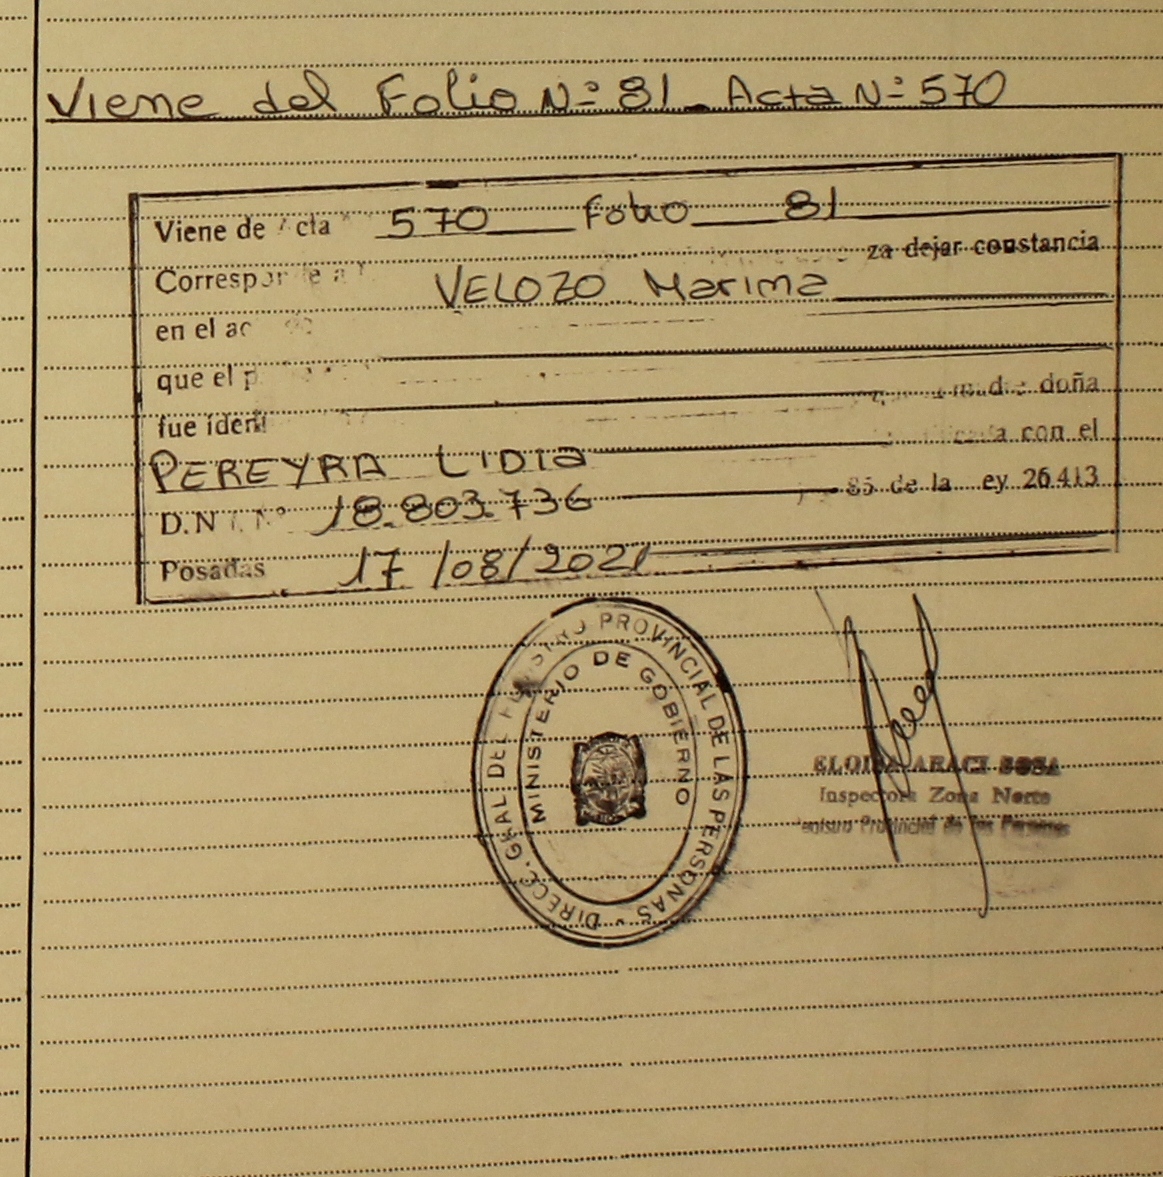 Viene del Folio Nº 81. Acta Nº 570
Viene de cta 570 Folio 81
za dejar constancia
Correspon e a VELOZO Marina
en el ac
que el p
madre doña
fue identi
a con el
PEREYRA LIDIA
85 de la ey 26413
D.N Nº 18.803.736
Posadas 17/08/2021
DIRECC. GRAL DEL REGISTRO PROVINCIAL DE LAS PERSONAS
MINISTERIO DE GOBIERNO
ELOISA ARACI SOSA
Inspectora Zona Norte
Registro Provincial de las Personas